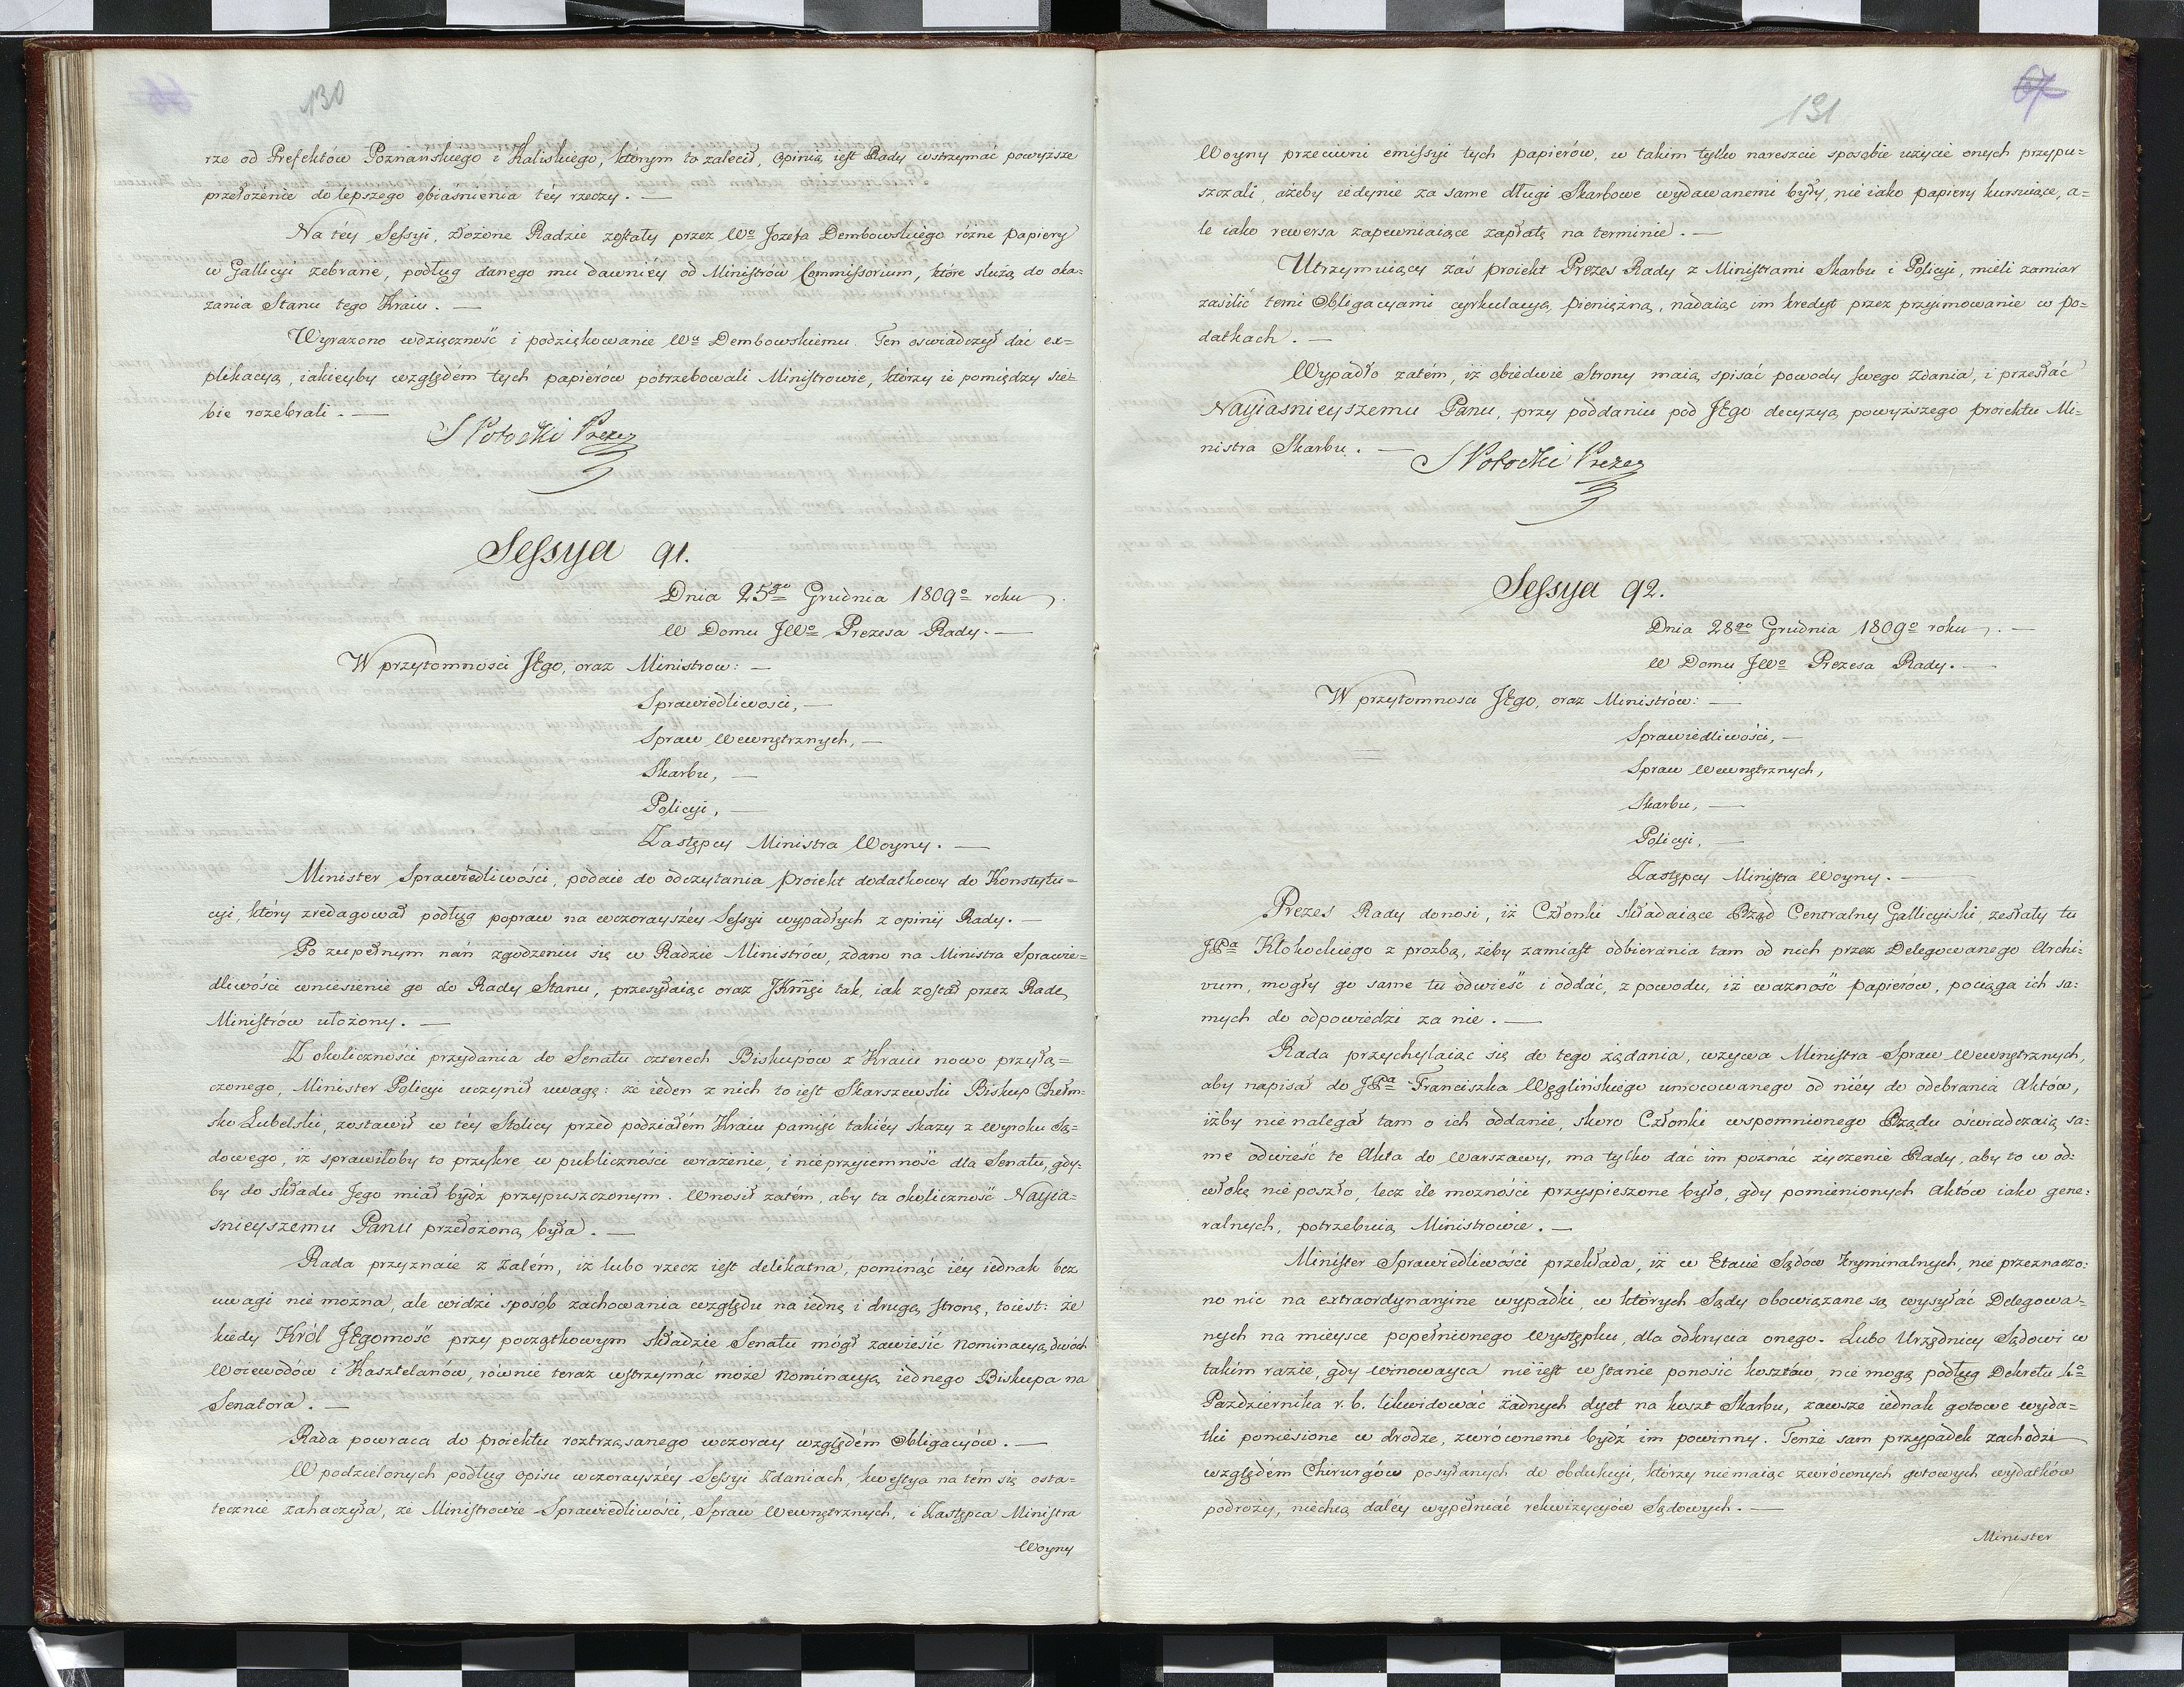 130
rze od Prefektów Poznańskiego i Kaliskiego, którym to zalecił, opinią iest Rady wstrzymać powyższe
przełożenie do lepszego obiaśnienia téy rzeczy. —
Na téy Sessyi, złożone Radzie zostały przez Wo Jozefa Dembowskiego różne papiery
w Gallicyi zebrane, podług danego mu dawniéy od Ministrów Commissorium, które służą do oka=
zania Stanu tego Kraiu. —
Wyrażono wdzięczność i podziękowanie Wu Dembowskiemu. Ten oswiadczył dać ex=
plikacyą, iakieyby względem tych papierów potrzebowali Ministrowie, którzy ie pomiędzy sie=
bie rozebrali. —
S Potocki Prezes
Sessya 91.
Dnia 25go Grudnia 1809o roku.
W Domu JWo Prezesa Rady. —
W przytomności JEgo, oraz Ministrow: —
Sprawiedliwości, —
Spraw Wewnętrznych, —
Skarbu, —
Policyi, —
Zastępcy Ministra Woyny. —
Minister Sprawiedliwości, podaie do odczytania proiekt dodatkowy do Konstytu=
cyi, który zredagował podług popraw na wczorayszéy Sessyi wypadłych z opinii Rady. —
Po zupełnym nań zgodzeniu się w Radzie Ministrów, zdano na Ministra Sprawie=
dliwości wniesienie go do Rady Stanu, przesyłaiąc oraz JKmci tak, iak został przez Radę
Ministrów ułożony. —
Z okoliczności przydania do Senatu czterech Biskupów z Kraiu nowo przyłą=
czonego, Minister Policyi uczynił uwagę: że ieden z nich to iest Skarszewski Biskup Chełm=
sko Lubelski, zostawił w téy Stolicy przed podziałém Kraiu pamięć takiéy skazy z wyroku Są=
dowego, iż sprawiłoby to przykre w publiczności wrażenie, i nieprzyiemność dla Senatu, gdy=
by do składu Jego miał bydź przypuszczonym. Wnosił zatém, aby ta okoliczność Nayia=
śnieyszemu Panu przełożoną była. —
Rada przyznaie z żalém, iż lubo rzecz iest delikatna, pominąć iéy iednak bez
uwagi nie można, ale widzi sposób zachowania względu na iedną i drugą stronę, toiest: że
kiedy Król JEgomość przy początkowym składzie Senatu mógł zawiesić nominacyą dwóch
Woiewodów i Kasztelanów, równie teraz wstrzymać może nominacyą iednego Biskupa na
Senatora. —
Rada powraca do proiektu roztrząsanego wczoray względém Obligacyów. —
W podzielonych podług opisu wczorayszéy Sessyi zdaniach, kwestya na tém się osta=
tecznie zahaczyła, że Ministrowie Sprawiedliwości, Spraw Wewnętrznych, i Zastępca Ministra
Woyny
131
67
Woyny przeciwni emissyi tych papierów, w takim tylko nareszcie sposobie użycie onych przypu=
szczali, ażeby iedynie za same długi Skarbowe wydawanemi były, nie iako papiery kursuiące, a=
le iako rewersa zapewniaiące zapłatę na terminie. —
Utrzymuiący zaś proiekt Prezes Rady z Ministrami Skarbu i Policyi, mieli zamiar
zasilić temi Obligacyami cyrkulacyą pieniężną, nadaiąc im kredyt przez przyimowanie w po=
datkach. —
Wypadło zatém, iż obiedwie Strony maią spisać powody swego zdania, i przesłać
Nayiasnieyszemu Panu, przy poddaniu pod JEgo decyzyą powyższego proiektu Mi=
nistra Skarbu. —
S Potocki Prezes
Sessya 92.
Dnia 28go Grudnia 1809o roku. —
W Domu JWo Prezesa Rady. —
W przytomnosci JEgo, oraz Ministrów: —
Sprawiedliwości, —
Spraw Wewnętrznych,
Skarbu, —
Policyi, —
Zastępcy Ministra Woyny. —
Prezes Rady donosi, iż Członki składaiące Rząd Centralny Gallicyiski, zesłały tu
JPa Kłokockiego z prozbą, żeby zamiast odbierania tam od nich przez Delegowanego Archi=
vum, mogły go same tu odwieść i oddać, z powodu, iż ważność papierów, pociąga ich sa=
mych do odpowiedzi za nie. —
Rada przychylaiąc się do tego żądania, wzywa Ministra Spraw Wewnętrznych,
aby napisał do JPa Franciszka Węglińskiego umocowanego od niéy do odebrania Aktów,
iżby nie nalegał tam o ich oddanie, skoro Członki wspomnionego Rządu oświadczaią sa=
me odwieść te Akta do Warszawy, ma tylko dać im poznać życzenie Rady, aby to w od=
włokę nie poszło, lecz ile możności przyspieszone było, gdy pomienionych Aktów iako gene=
ralnych, potrzebuią Ministrowie. —
Minister Sprawiedliwości przekłada, iż w Etacie Sądów Kryminalnych, nie przeznaczo=
no nic na extraordynaryine wypadki, w których Sądy obowiązane są wysyłać Delegowa=
nych na mieysce popełnionego Występku, dla odkrycia onego. Lubo Urzędnicy Sądowi w
takim razie, gdy winowayca nie iest w stanie ponosić kosztów, nie mogą podług Dekretu 4o
Pazdziernika r. b. likwidować żadnych dyet na koszt Skarbu, zawsze iednak gotowe wyda=
tki poniesione w drodze, zwróconemi bydź im powinny. Tenże sam przypadek zachodzi
względém Chirurgów posyłanych do obdukcyi, którzy niemaiąc zwróconych gotowych wydatków
podroży, niechcą daléy wypełniać rekwizycyów Sądowych. —
Minister